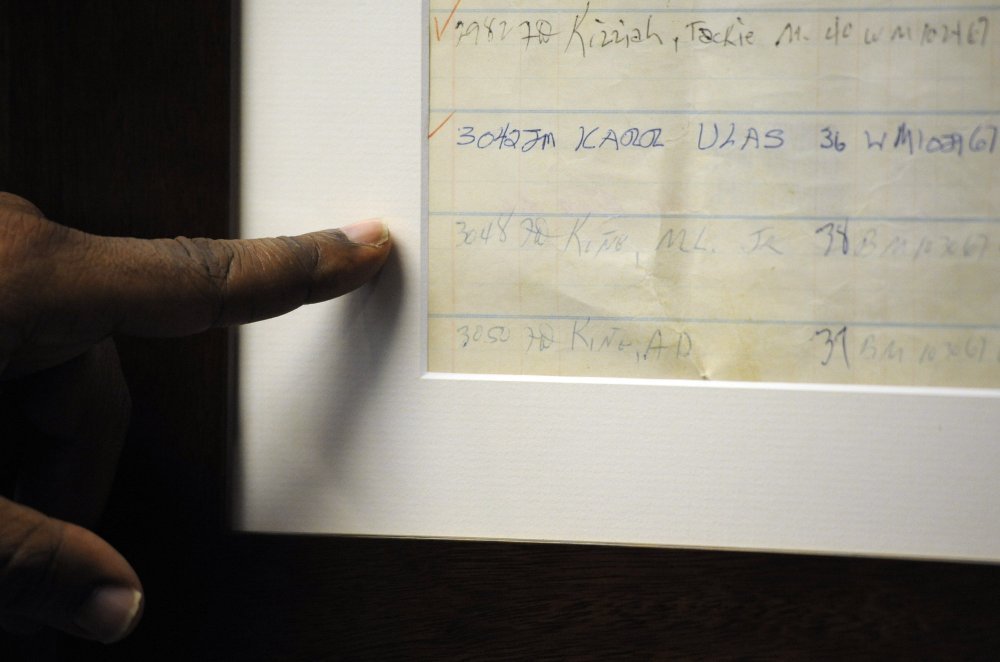 2982 JD Kizziah, Jackie M. 40 W M 102467
3042 JM KAROL ULAS 36 W M 102967
3048 JD King, M.L. Jr 38 B M 103067
3050 JD King, A D 37 B M 103067